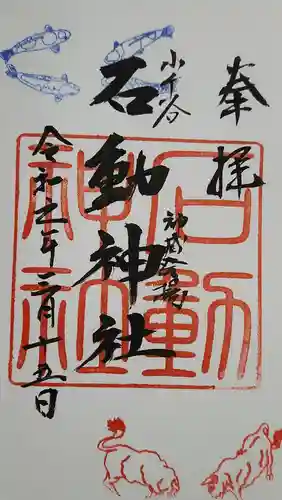 奉拝
小千谷
石動神社
令和年三月十五日
石動
神社